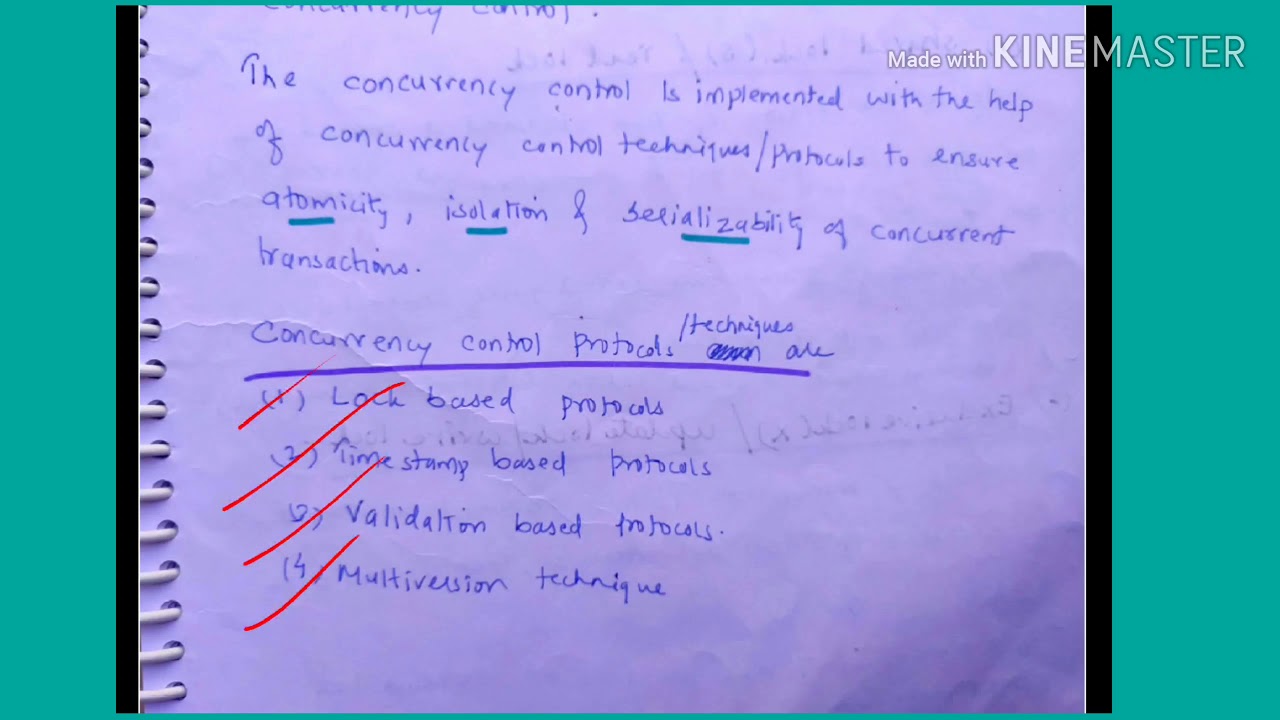 concurrency control.
Made with KINEMASTER
The concurrency control Is implemented with the help
of concurrency control techniques/protocols to ensure
atomicity, isolation & serializability of concurrent
transactions.
Concurrency control protocols /techniques are
(1) Lock based protocols
(2) Timestamp based protocols
(3) Validation based protocols.
(4) Multiversion technique